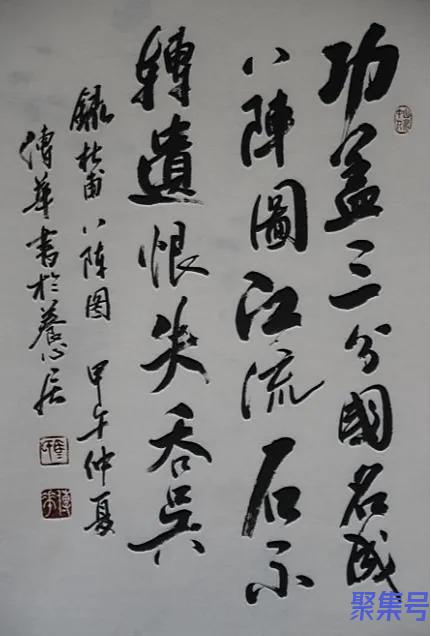 功盖三分國名成
八陣圖江流石不
轉遺恨失吞吴
録杜甫八陣图 甲午仲夏
傅華書於養心居
聚集号